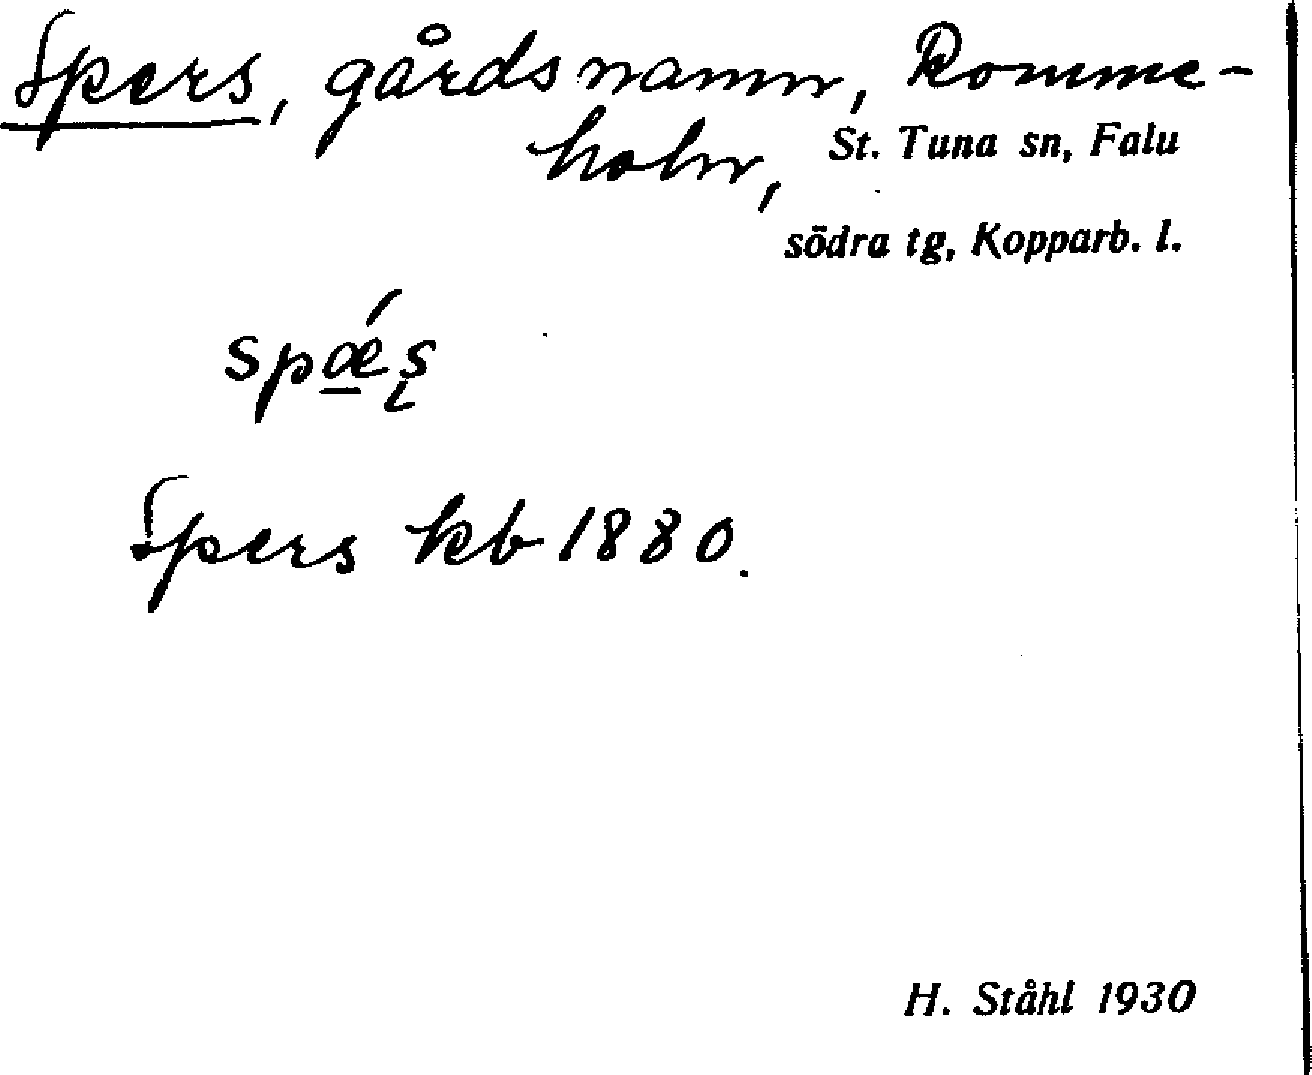 Spers, gårdsnamn, Romme-
holm, St. Tuna sn, Falu
södra tg, Kopparb. l.
spǽ̱s̨
Spers kb 1880.
H. Ståhl 1930